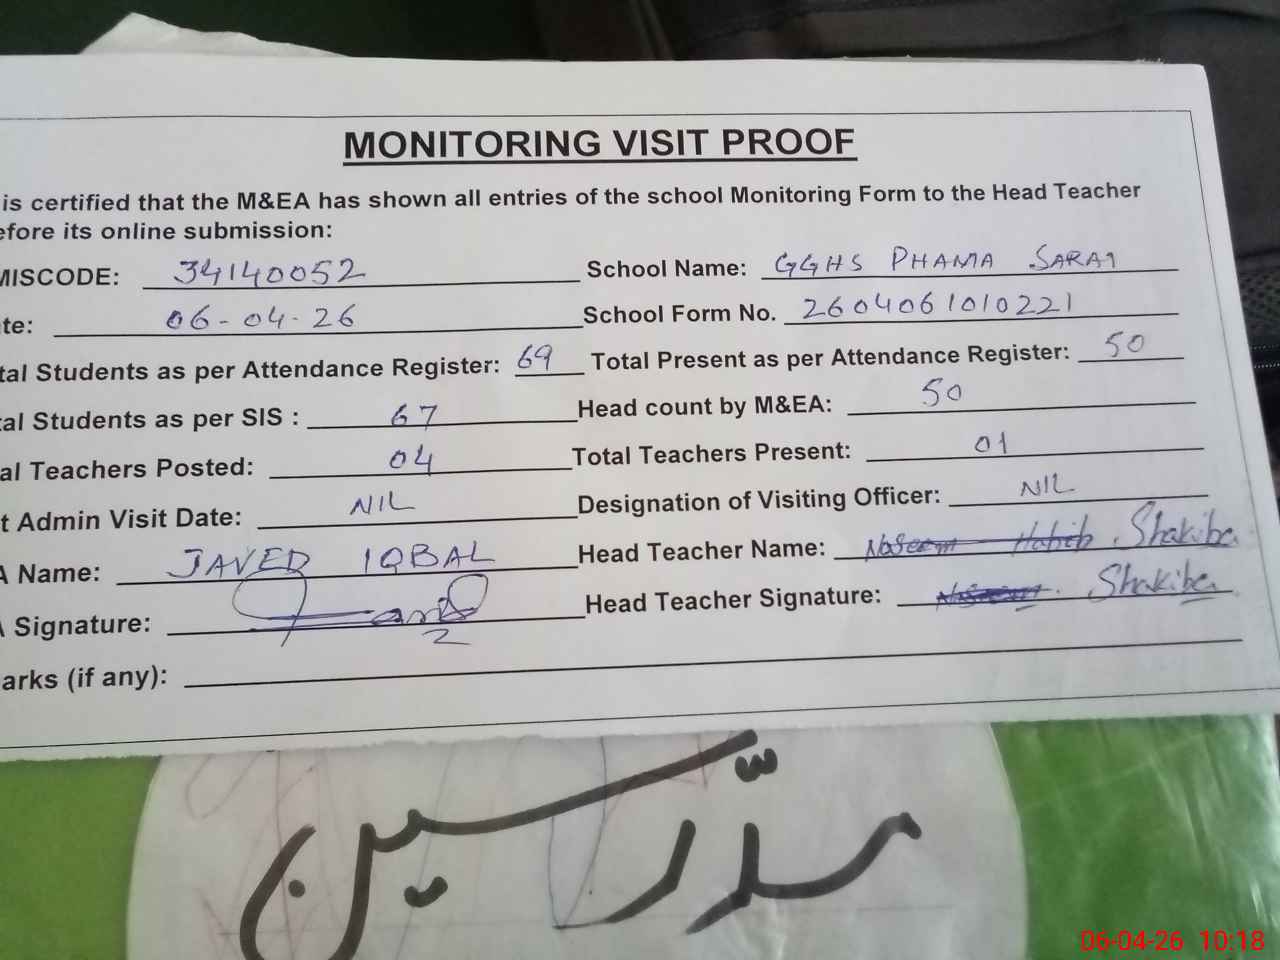 MONITORING VISIT PROOF
is certified that the M&EA has shown all entries of the school Monitoring Form to the Head Teacher
efore its online submission:
MISCODE: 34140052 School Name: GGHS PHAMA SARAI
te: 06-04-26 School Form No. 2604061010221
tal Students as per Attendance Register: 69 Total Present as per Attendance Register: 50
tal Students as per SIS : 67 Head count by M&EA: 50
al Teachers Posted: 04 Total Teachers Present: 01
t Admin Visit Date: NIL Designation of Visiting Officer: NIL
A Name: JAVED IQBAL Head Teacher Name: Naseem Habib Shakiba
A Signature: Head Teacher Signature: Shakiba
arks (if any):
مدرسین
06-04-26 10:18